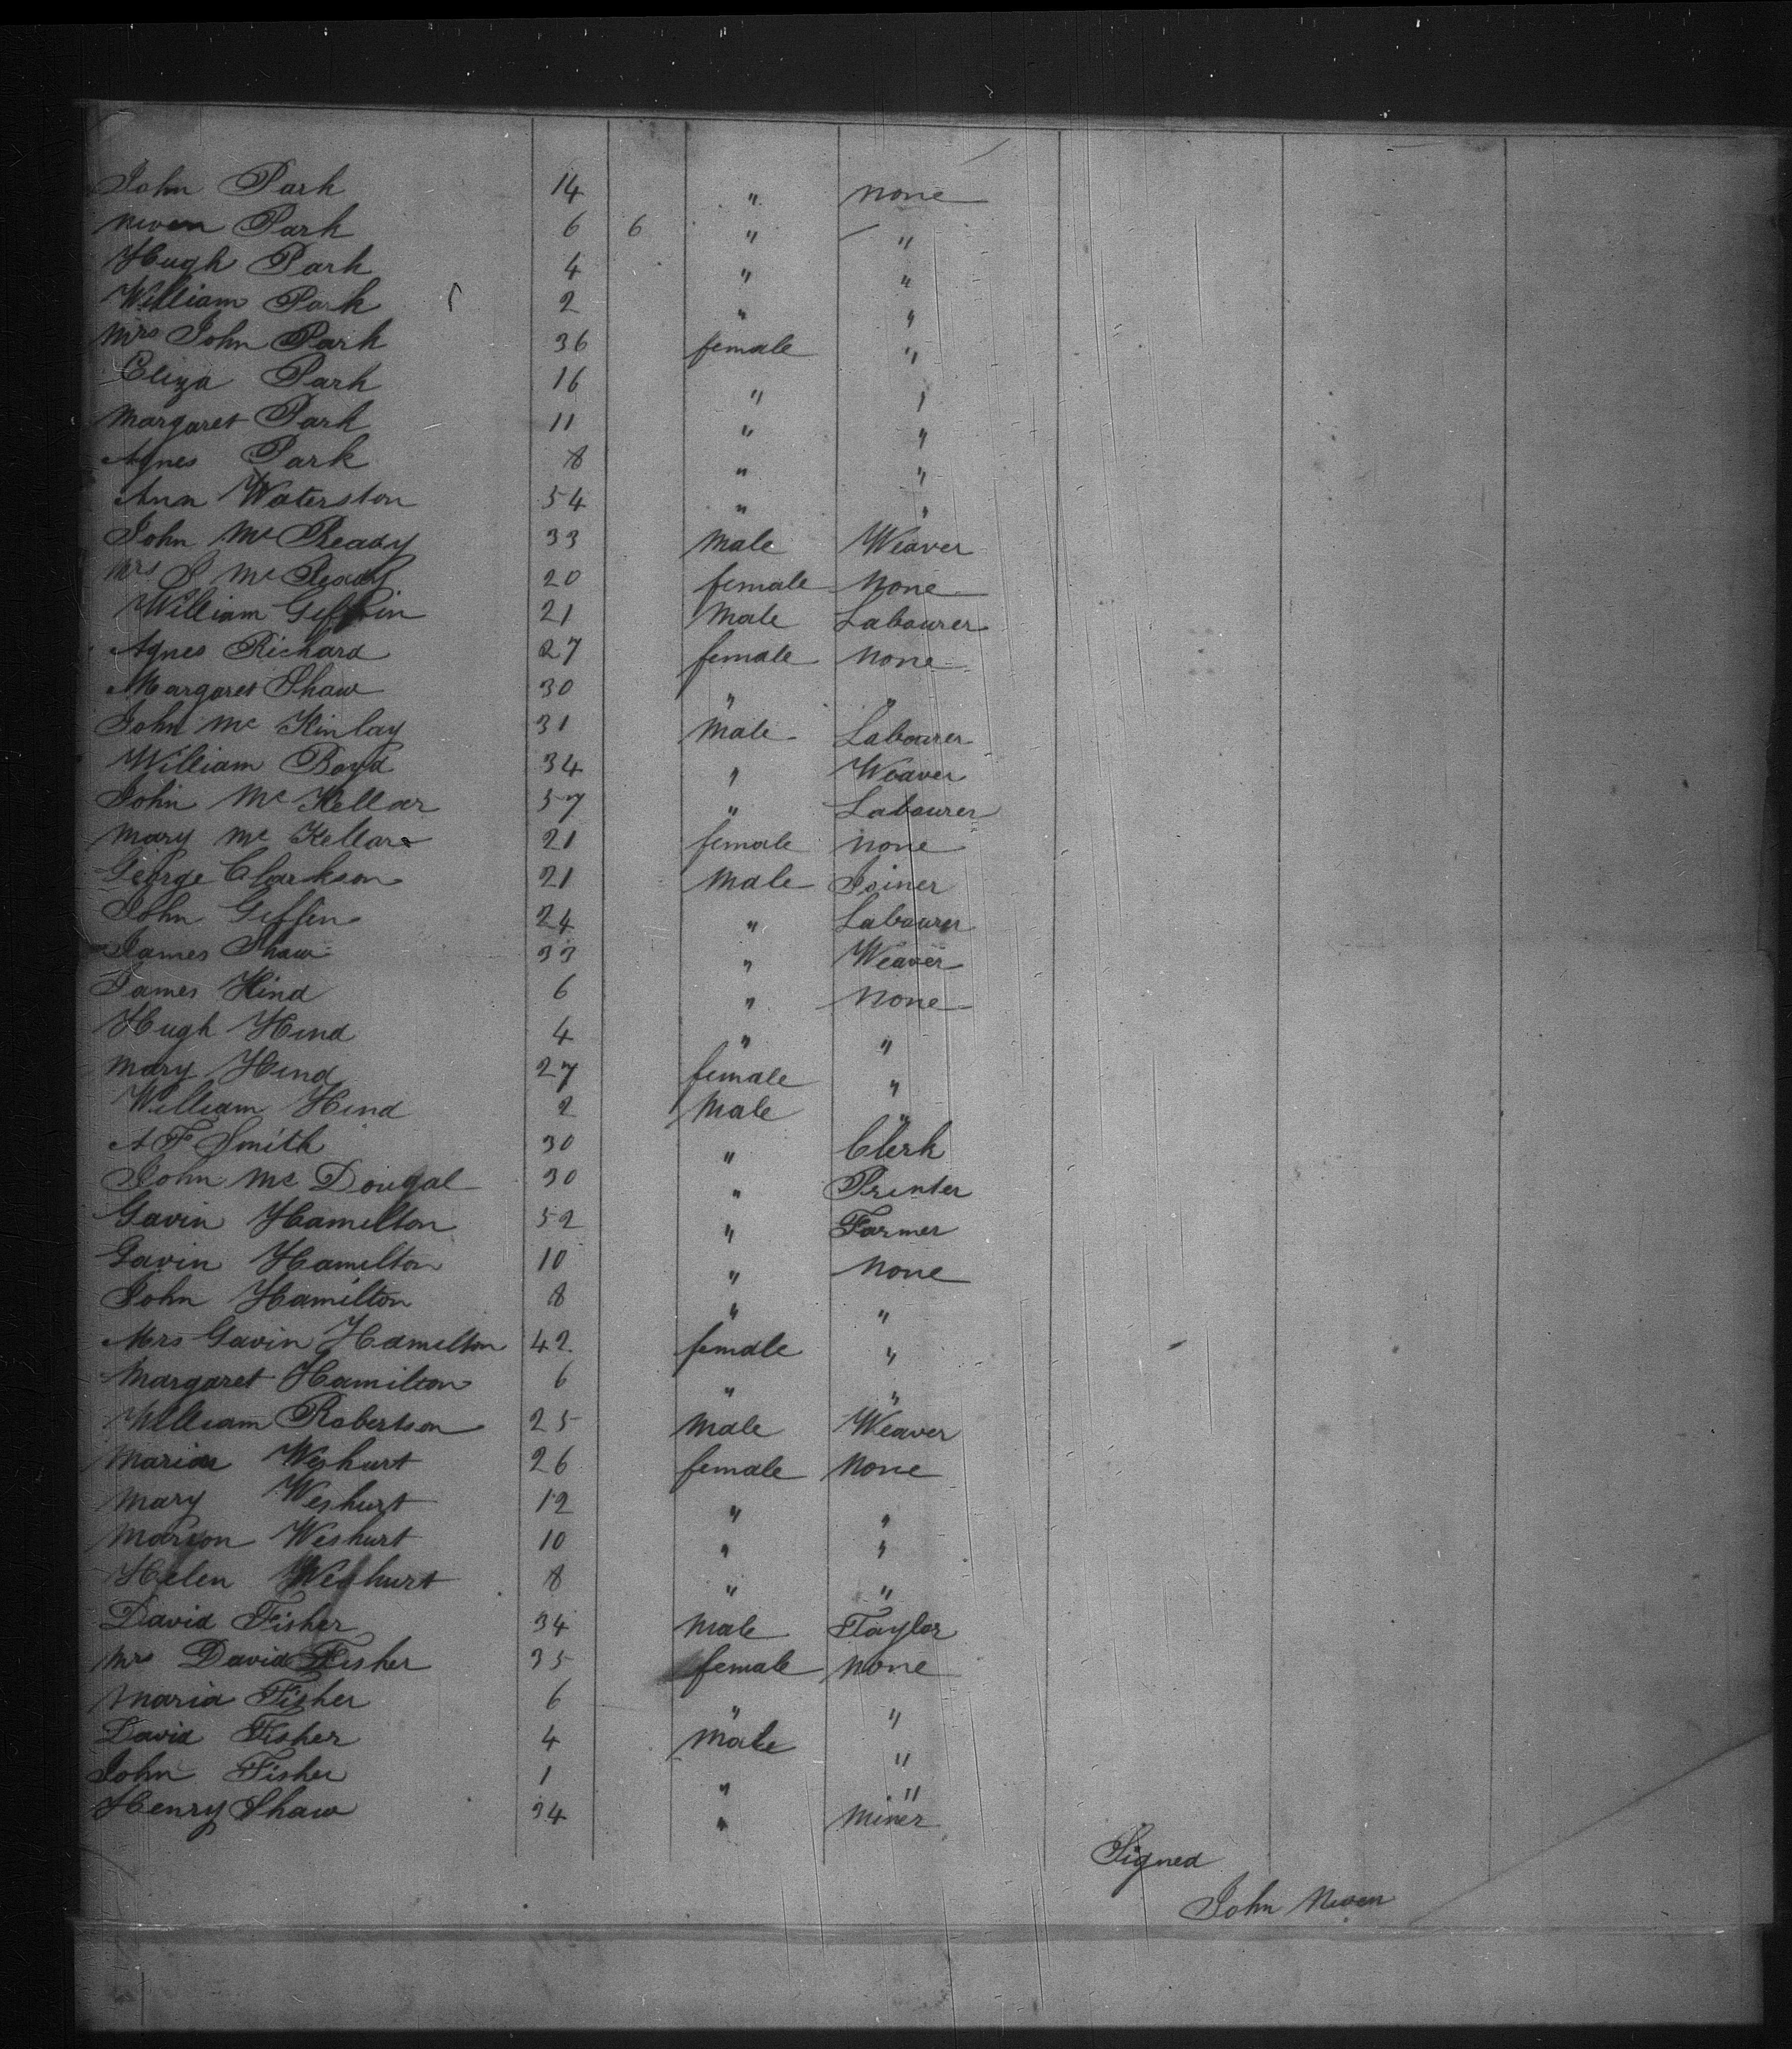 John Park 14 " none
Niven Park 6 6 " "
Hugh Park 4 " "
William Park 2 " "
Mrs John Park 36 female "
Eliza Park 16 " "
Margaret Park 11 " "
Agnes Park 8 " "
Ann Waterston 54 " "
John Mc Ready 33 Male Weaver
Mrs J Mc Ready 20 female None
William Giffin 21 Male Labourer
Agnes Richard 27 female None
Margaret Shaw 30 " "
John Mc Kinlay 31 Male Labourer
William Boyd 34 " Weaver
John Mc Kellar 57 " Labourer
Mary Mc Kellar 21 female none
George Clarkson 21 Male Joiner
John Giffen 24 " Labourer
James Shaw 33 " Weaver
James Hind 6 " None
Hugh Hind 4 " "
Mary Hind 27 female "
William Hind 2 Male "
A F Smith 30 " Clerk
John Mc Dougal 30 " Printer
Gavin Hamilton 52 " Farmer
Gavin Hamilton 10 " None
John Hamilton 8 " "
Mrs Gavin Hamilton 42 female "
Margaret Hamilton 6 " "
William Robertson 25 Male Weaver
Marion Weshurt 26 female None
Mary Weshurt 12 " "
Marion Weshurt 10 " "
Helen Weshurt 8 " "
David Fisher 34 Male Taylor
Mrs David Fisher 35 female None
Maria Fisher 6 " "
David Fisher 4 Male "
John Fisher 1 " "
Henry Shaw 34 " Miner
Signed
John Niven